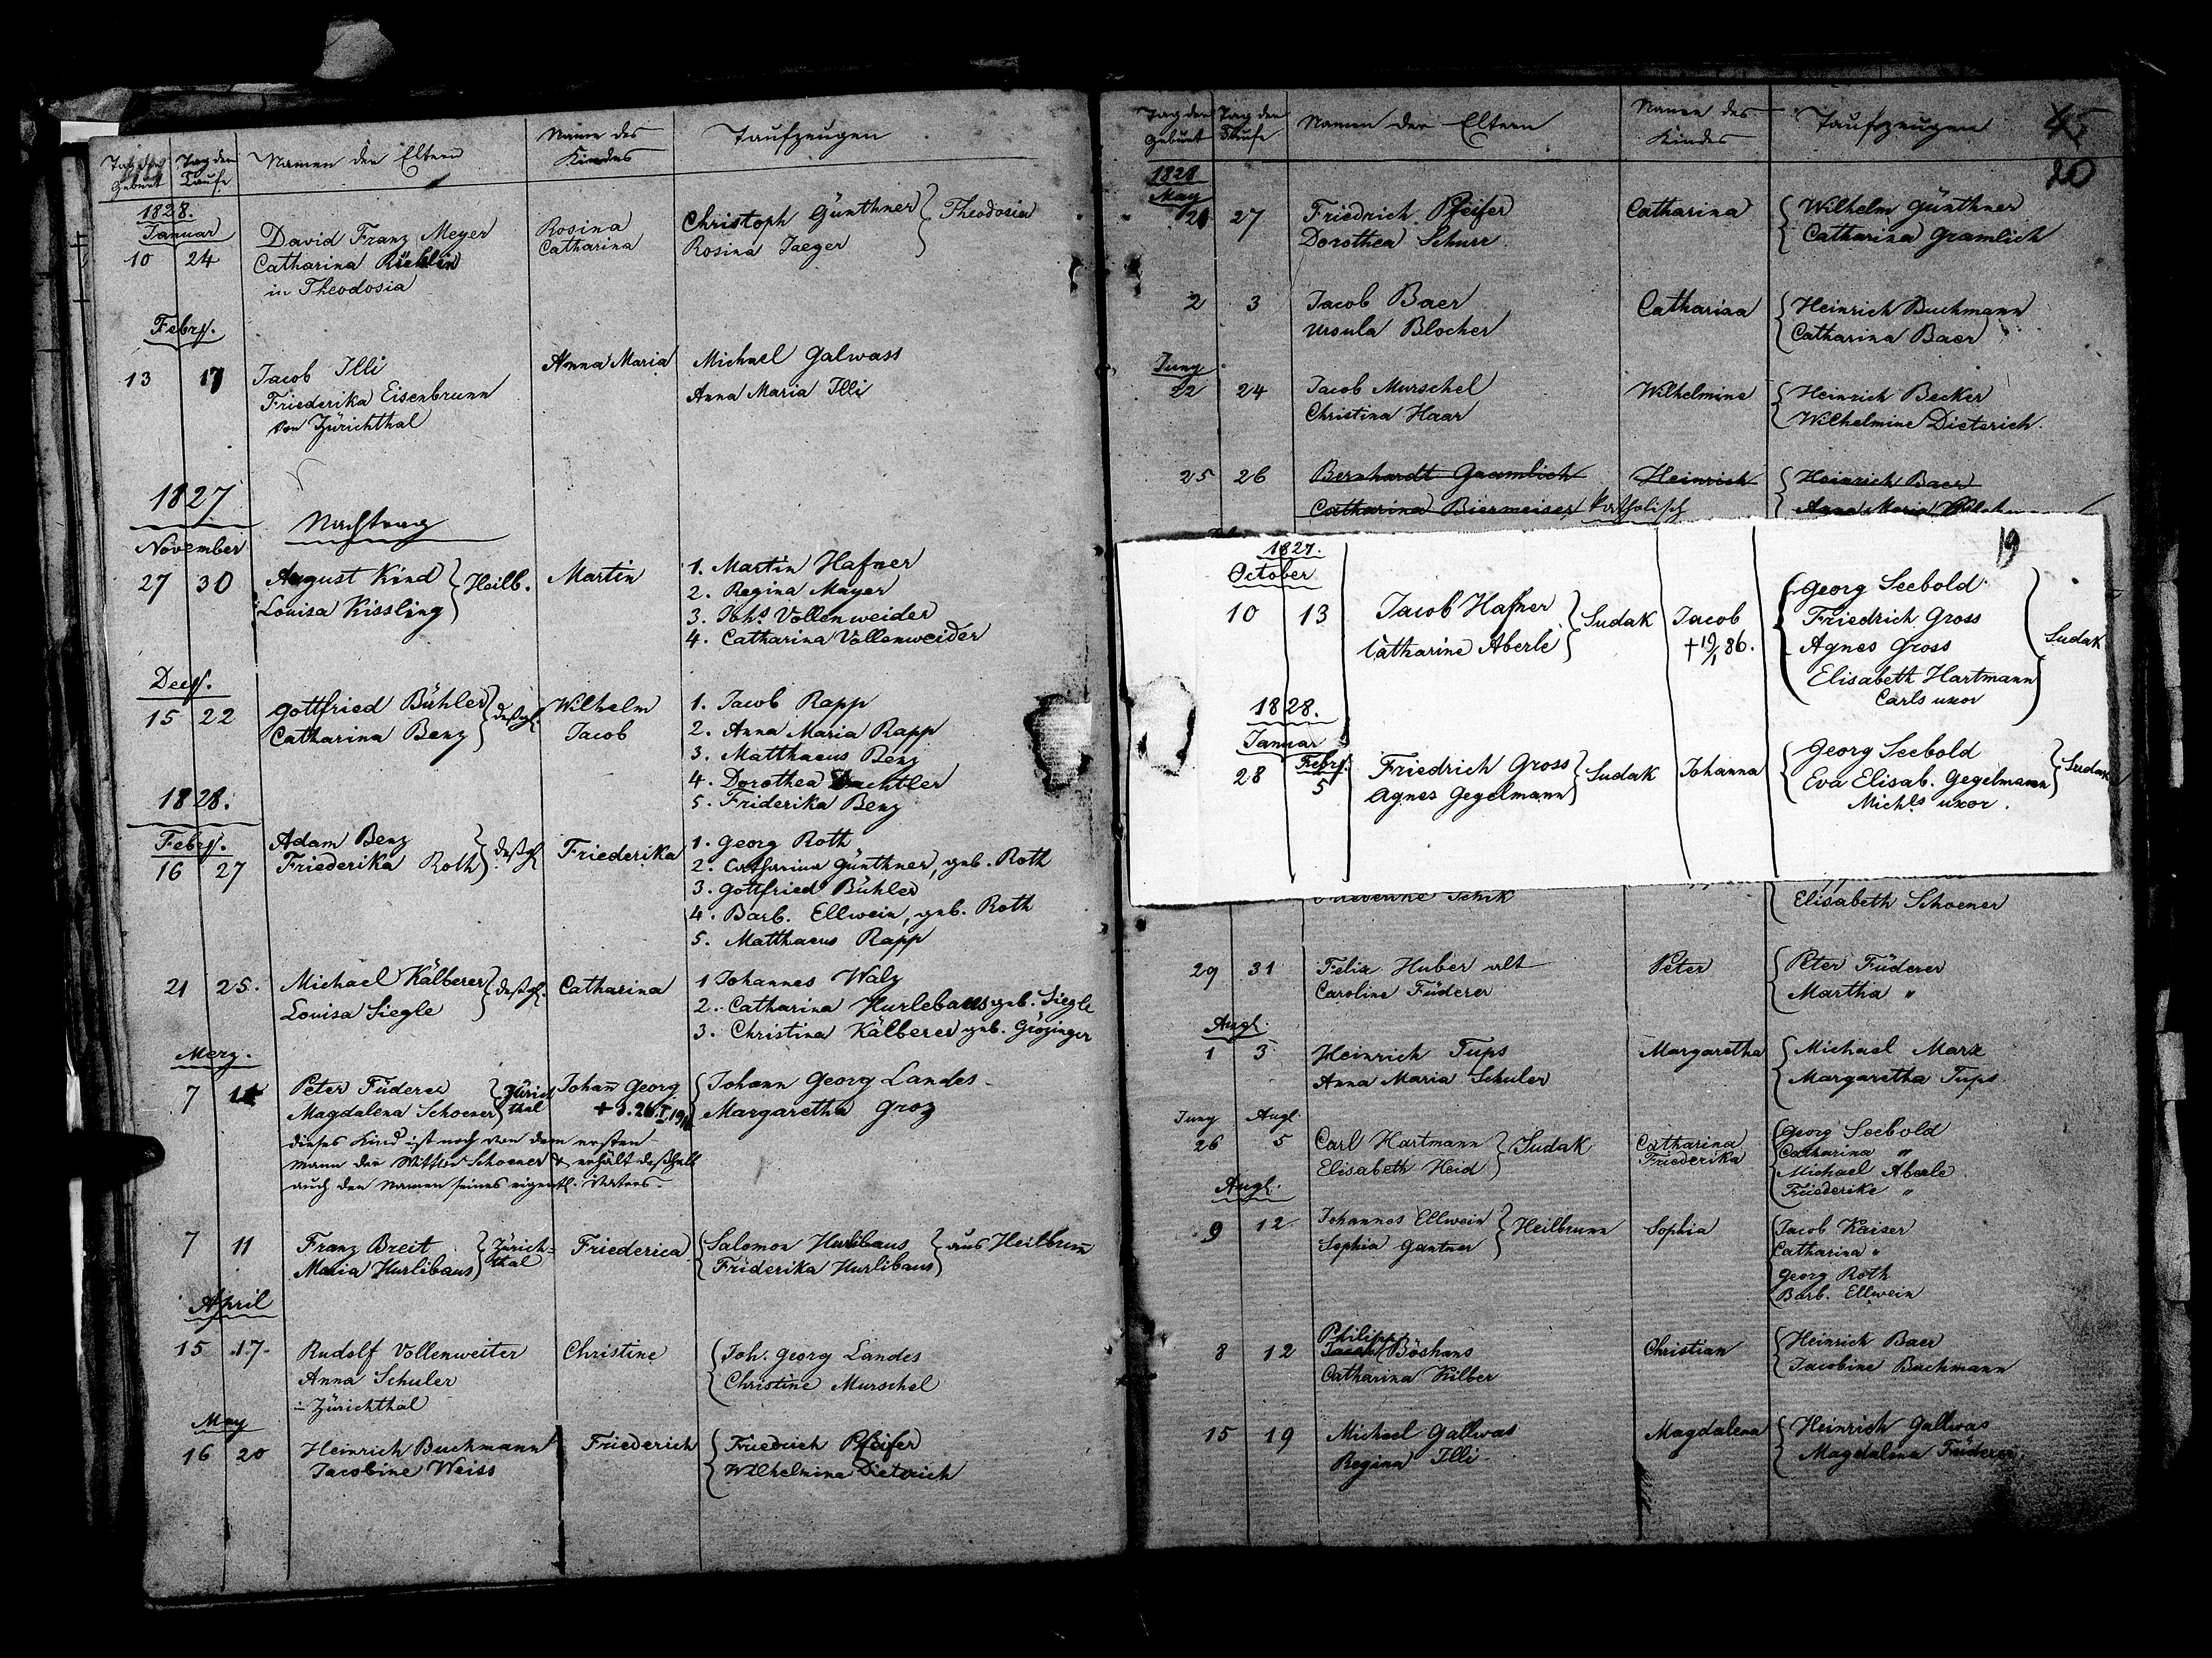 Tag der Geburt Tag der Taufe Namen der Eltern Name des Kindes Taufzeugen
1828.
Januar
10 24 David Franz Meyer Rosina Christoph Günthner } Theodosia
Catharina Catharina Rosina Jaeger
in Theodosia
Febr.
13 17 Jacob Illi Anna Maria Michael Galwass
Friederika Eisenbrunn Anna Maria Illi
von Zürichthal
1827
Nachtrag
November
27 30 August Kind } Heilb. Martin 1. Martin Hafner
Louisa Kissling 2. Regina Mayer
3. Johs. Vollenweider
4. Catharina Vollenweider
Decr.
15 22 Gottfried Bühler } deßgl. Wilhelm 1. Jacob Rapp
Catharina Benz Jacob 2. Anna Maria Rapp
3. Matthaeus Benz
4. Dorothea
5. Friderika Benz
1828.
Febr.
16 27 Adam Benz } deßgl. Friederika 1. Georg Roth
Friederika Roth 2. Catharina Günthner, geb. Roth
3. Gottfried Bühler
4. Barb. Ellwein, geb. Roth
5. Matthaeus Rapp
21 25. Michael Kälberer } deßgl. Catharina 1 Johannes Walz
Louisa Siegle 2. Catharina Hurlebaus geb. Siegle
3. Christina Kälberer geb. Grözinger
Merz.
7 Peter Füderer } Zürich Johann Georg { Johann Georg Landes
Magdalena Schoener thal Margaretha Groz
dieses Kind ist noch von dem ersten
Mann der Wittwe Schoener & erhält deßhalb
auch den Namen seines eigentl. Vaters.
7 11 Franz Breit } Zürich= Friederica { Salomon Hurlibaus } aus Heilbrunn
Maria Hurlibaus thal Friderika Hurlibaus
April
15 17. Rudolf Vollenweiter Christine { Joh. Georg Landes
Anna Schuler Christine Murschel
Zürichthal
May
16 20 Heinrich Buchmann Friederich { Friedrich Pfeifer
Jacobine Weiss Wilhelmina Dieterich
Tag der Geburt Tag der Taufe Namen der Eltern Name des Kindes Taufzeugen
20
1828
May
27 Friedrich Pfeifer Catharina { Wilhelm Günthner
Dorothea Schurr Catharina Gramlich
2 3 Jacob Baer Catharina { Heinrich Buchmann
Ursula Blocher Catharina Baer
Juny
22 24 Jacob Murschel Wilhelmine { Heinrich Becker
Christina Haar Wilhelmine Dieterich.
25 26 Bernhardt Gramlich Heinrich { Heinrich Baer
Catharina Biermeiser katholisch Anna Maria
19
1827.
October
10 13 Jacob Hafner } Sudak Jacob { Georg Seebold
Catharine Aberle +19/1 86. Friedrich Gross
Agnes Gross } Sudak
Elisabeth Hartmann
Carls uxor
1828.
Januar
28 Febr. 5 Friedrich Gross } Sudak Johanna { Georg Seebold
Agnes Gegelmann Eva Elisab. Gegelmann } Sudak
Michls uxor.
Schik Elisabeth Schoener
29 31 Felix Huber alt Peter { Peter Füderer
Caroline Füderer Martha "
Augl.
1 3 Heinrich Tups Margaretha { Michael Marx
Anna Maria Schuler Margaretha Tups
Juny Augl.
26 5 Carl Hartmann } Sudak Catharina { Georg Seebold
Elisabeth Heid Friederika Catharina "
Michael Aberle
Friederike "
Augl.
9 12 Johannes Ellwein } Heilbrunn Sophia { Jacob Kaiser
Sophia Gantner Catharina "
Georg Roth
Barb. Ellwein
Philipp
8 12 Jacob Böshans Christian { Heinrich Baer
Catharina Kilber Jacobine Buchmann
15 19 Michael Gallwas Magdalena { Heinrich Gallwas
Regina Illi Magdalena Füderer